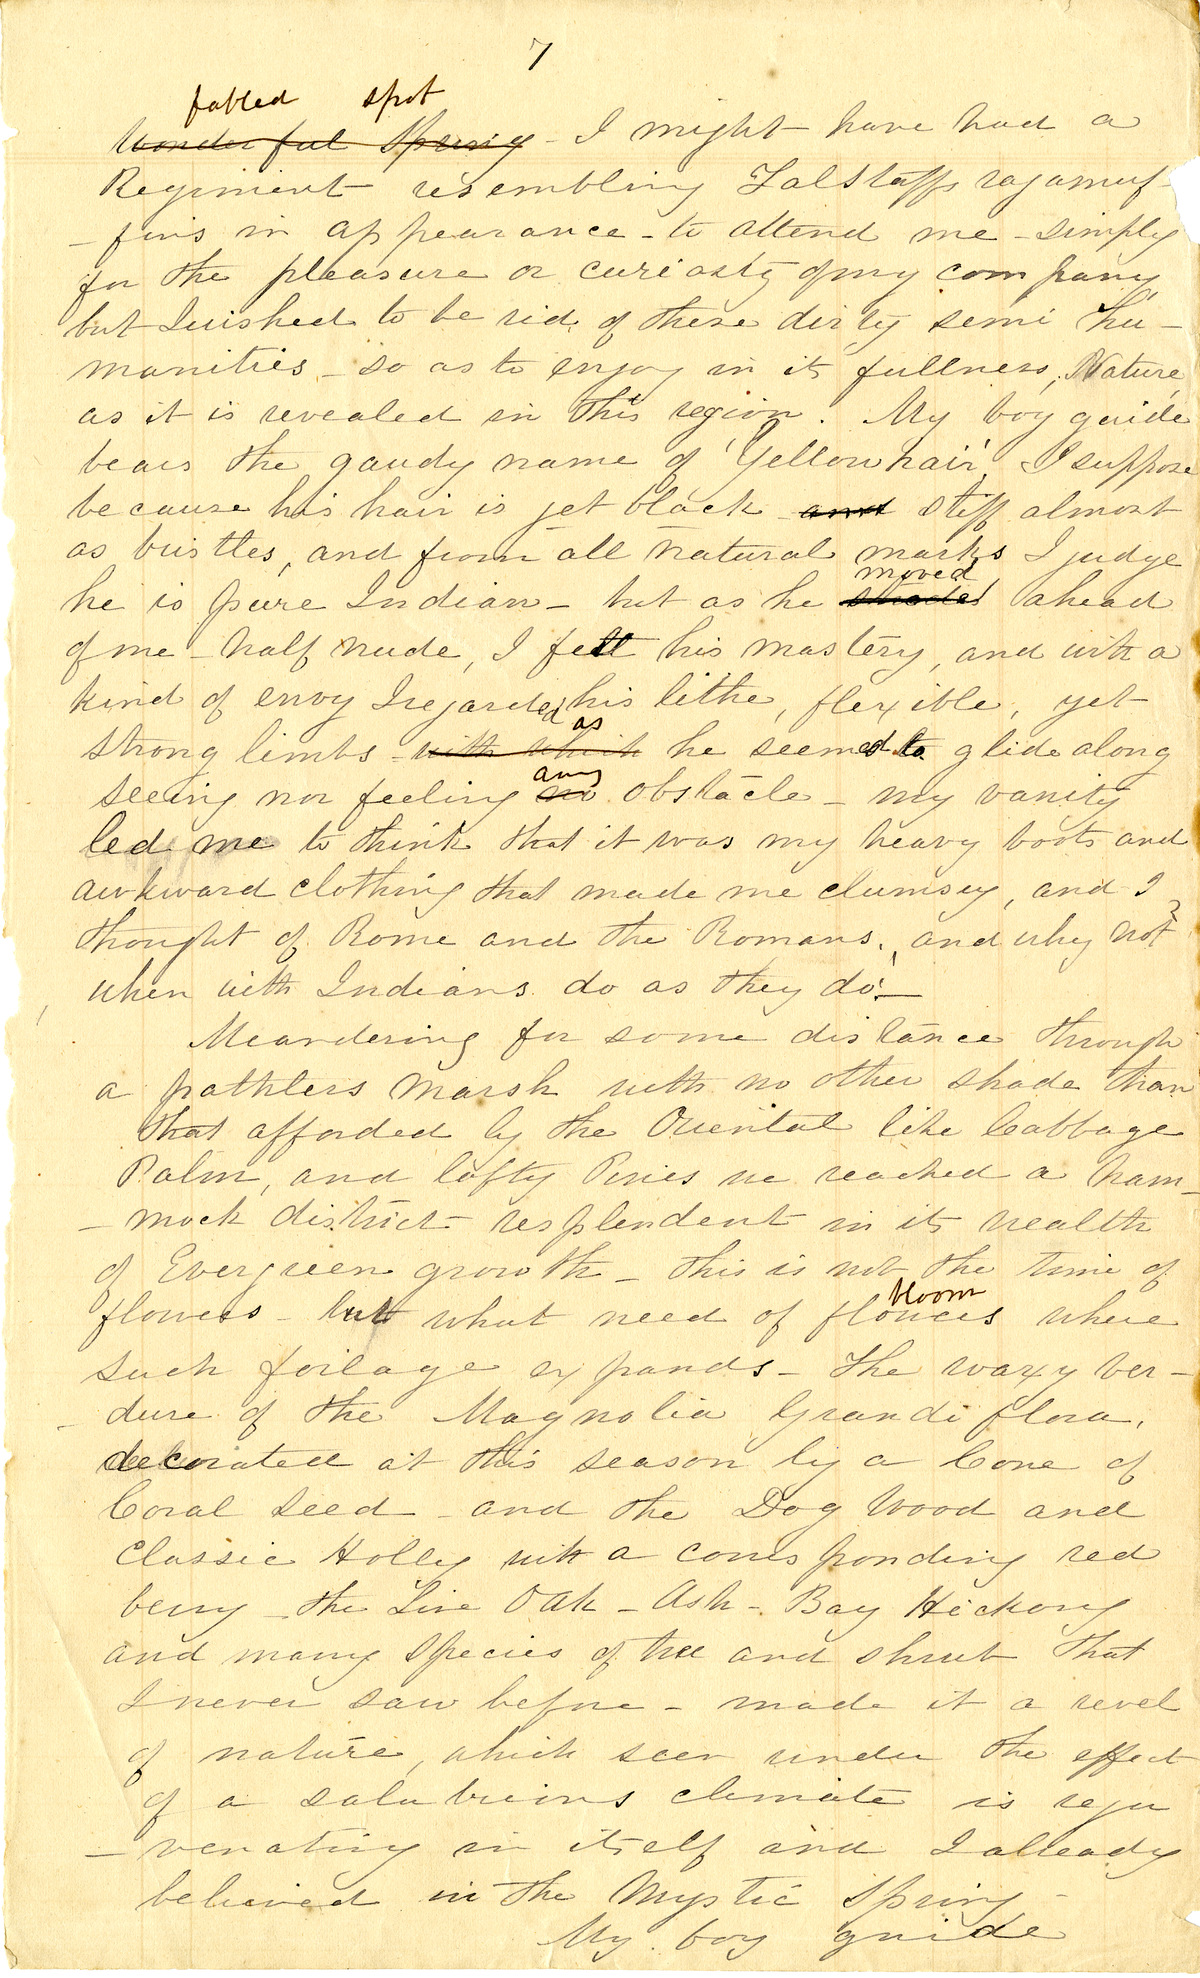 7
fabled spot
Wonderful Spring - I might have had a
Regiment resembling Falstaffs ragamuf-
-fins in appearance - to attend me - simply
for the pleasure or curiosty of my company
but I wished to be rid, of these dirty semi hu-
manities - so as to enjoy in its fullness, Nature,
as it is revealed in this region. My boy guide
bears the gaudy name of 'Yellow hair' I suppose
because his hair is jet black - and stiff almost
as bristles, and from all natural marks I judge
moved
he is pure Indian - but as he ahead
of me - half nude, I felt his mastery, and with a
kind of envy I regarded his lithe, flexible, yet
as
strong limbs - with which he seemed to glide along
any
seeing nor feeling no obstacle - my vanity
led me to think that it was my heavy boots and
awkward clothing that made me clumsey, and I
thought of Rome and the Romans, and why not?
when with Indians do as they do! -
Meandering for some distance through
a pathless marsh with no other shade than
that afforded by the Oriental like Cabbage
Palm, and lofty Pines we reached a ham-
-mock district - resplendent in its wealth
of Evergreen growth - this is not the time of
bloom
flowers - but what need of flowers where
such foilage expands - the waxy ver-
-dure of the Magnolia Grandiflora,
decorated at this season by a Cone of
Coral seed - and the Dog Wood and
classic Holly with a corresponding red
berry - the Live Oak - Ash - Bay Hickory
and many species of tree and shrub that
I never saw before - made it a revel
of nature, which seen under the effect
of a salubrious climate is reju
-venating in itself and I allready
believed in the Mystic Spring -
My boy guide